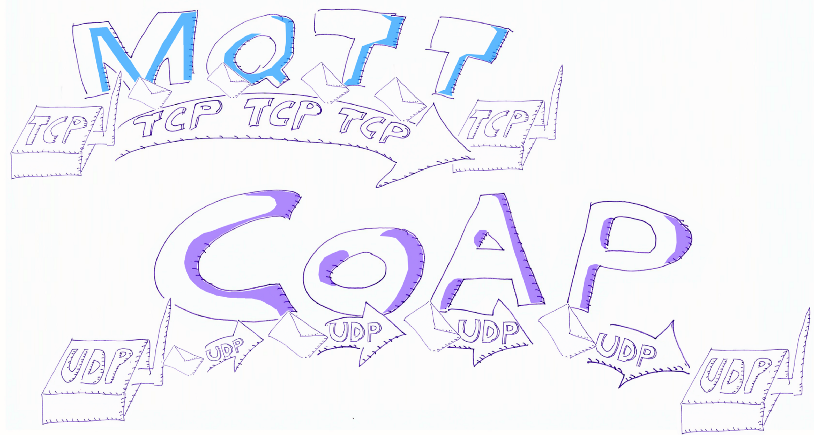 MQTT
TCP TCP TCP TCP TCP
CoAP
UDP UDP UDP UDP UDP UDP